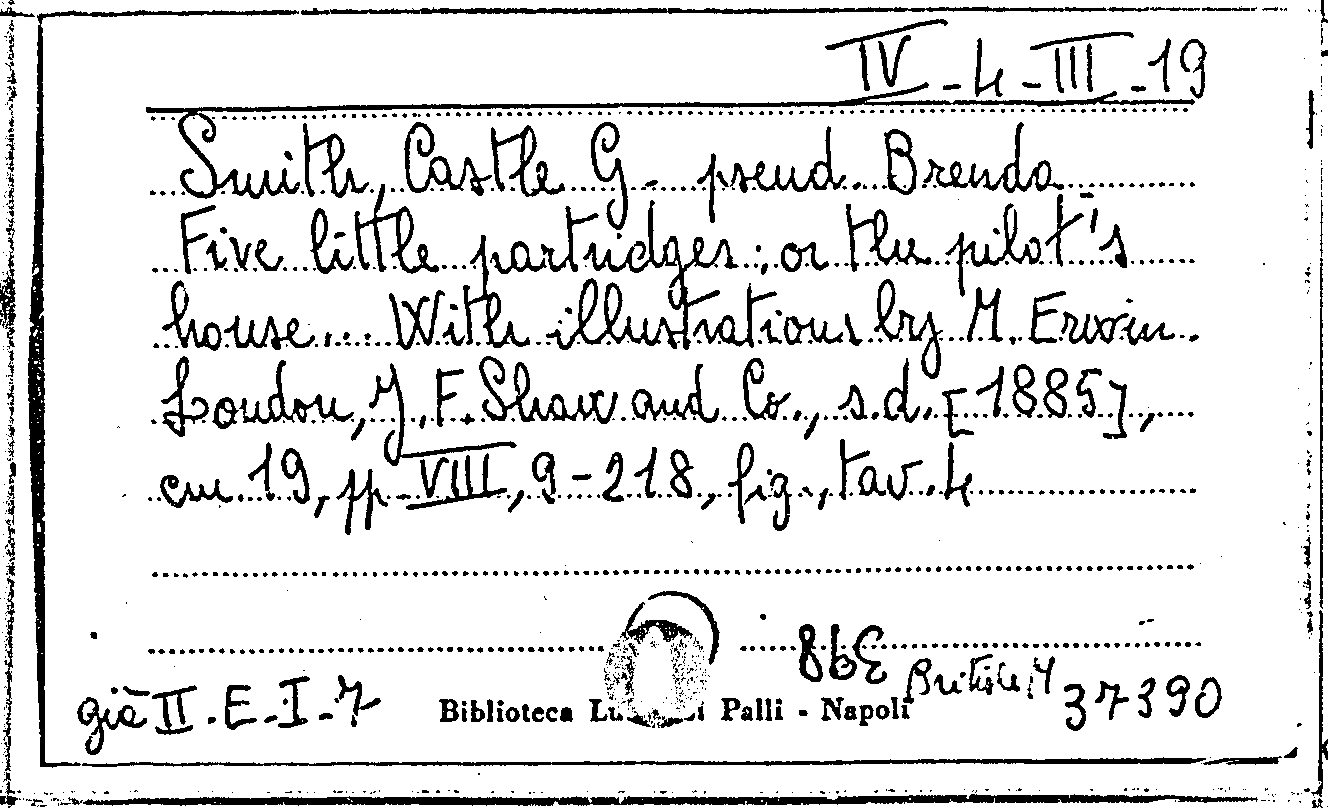 IV - 4 - III - 19
Smith, Castle G. pseud. Brenda.
Five little partridges; or the pilot's
house... With illustrations by M. Erwin.
London, J. F. Shaw and Co., s.d. [1885],
cm. 19, pp. VIII, 9-218, fig., tav. 4
già II. E. I. 7 Biblioteca Palli - Napoli 37390